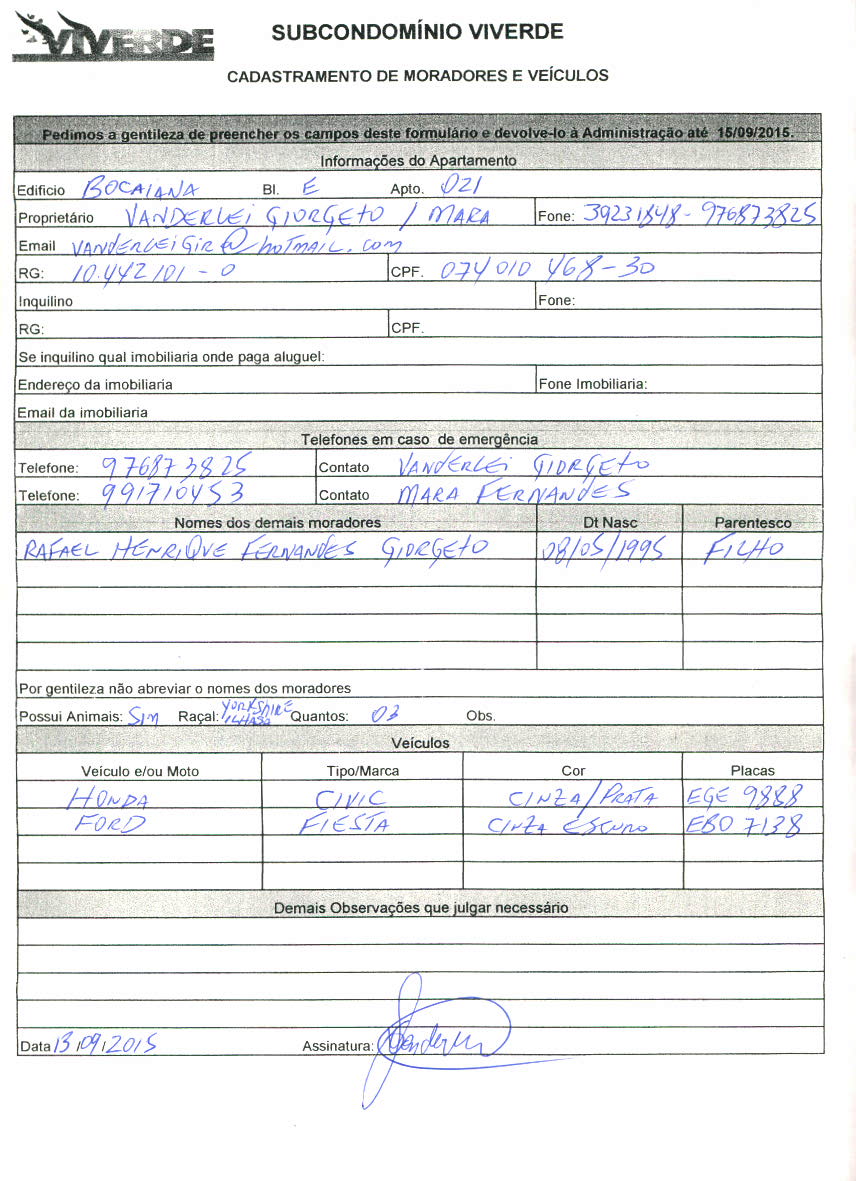 VIVERDE
SUBCONDOMÍNIO VIVERDE
CADASTRAMENTO DE MORADORES E VEÍCULOS
Pedimos a gentileza de preencher os campos deste formulário e devolve-lo à Administração até 15/09/2015.
Informações do Apartamento
Edificio BOCAIANA Bl. E Apto. 021
Proprietário VANDERLEI GIORGETO / MARA Fone: 39231848-976873825
Email VANDERLEIGIR@HOTMAIL.COM
RG: 10.442101-0 CPF. 074010468-30
Inquilino Fone:
RG: CPF.
Se inquilino qual imobiliaria onde paga aluguel:
Endereço da imobiliaria Fone Imobiliaria:
Email da imobiliaria
Telefones em caso de emergência
Telefone: 976873825 Contato VANDERLEI GIORGETO
Telefone: 991710453 Contato MARA FERNANDES
Nomes dos demais moradores Dt Nasc Parentesco
RAFAEL HENRIQUE FERNANDES GIORGETO 08/05/1995 FILHO
Por gentileza não abreviar o nomes dos moradores
Possui Animais: SIM Raçal: YORKSHIRE Quantos: 03 Obs.
Veículos
Veículo e/ou Moto Tipo/Marca Cor Placas
HONDA CIVIC CINZA/PRATA EGE 9888
FORD FIESTA CINZA ESCURO EBO 7138
Demais Observações que julgar necessário
Data 13/09/2015 Assinatura: